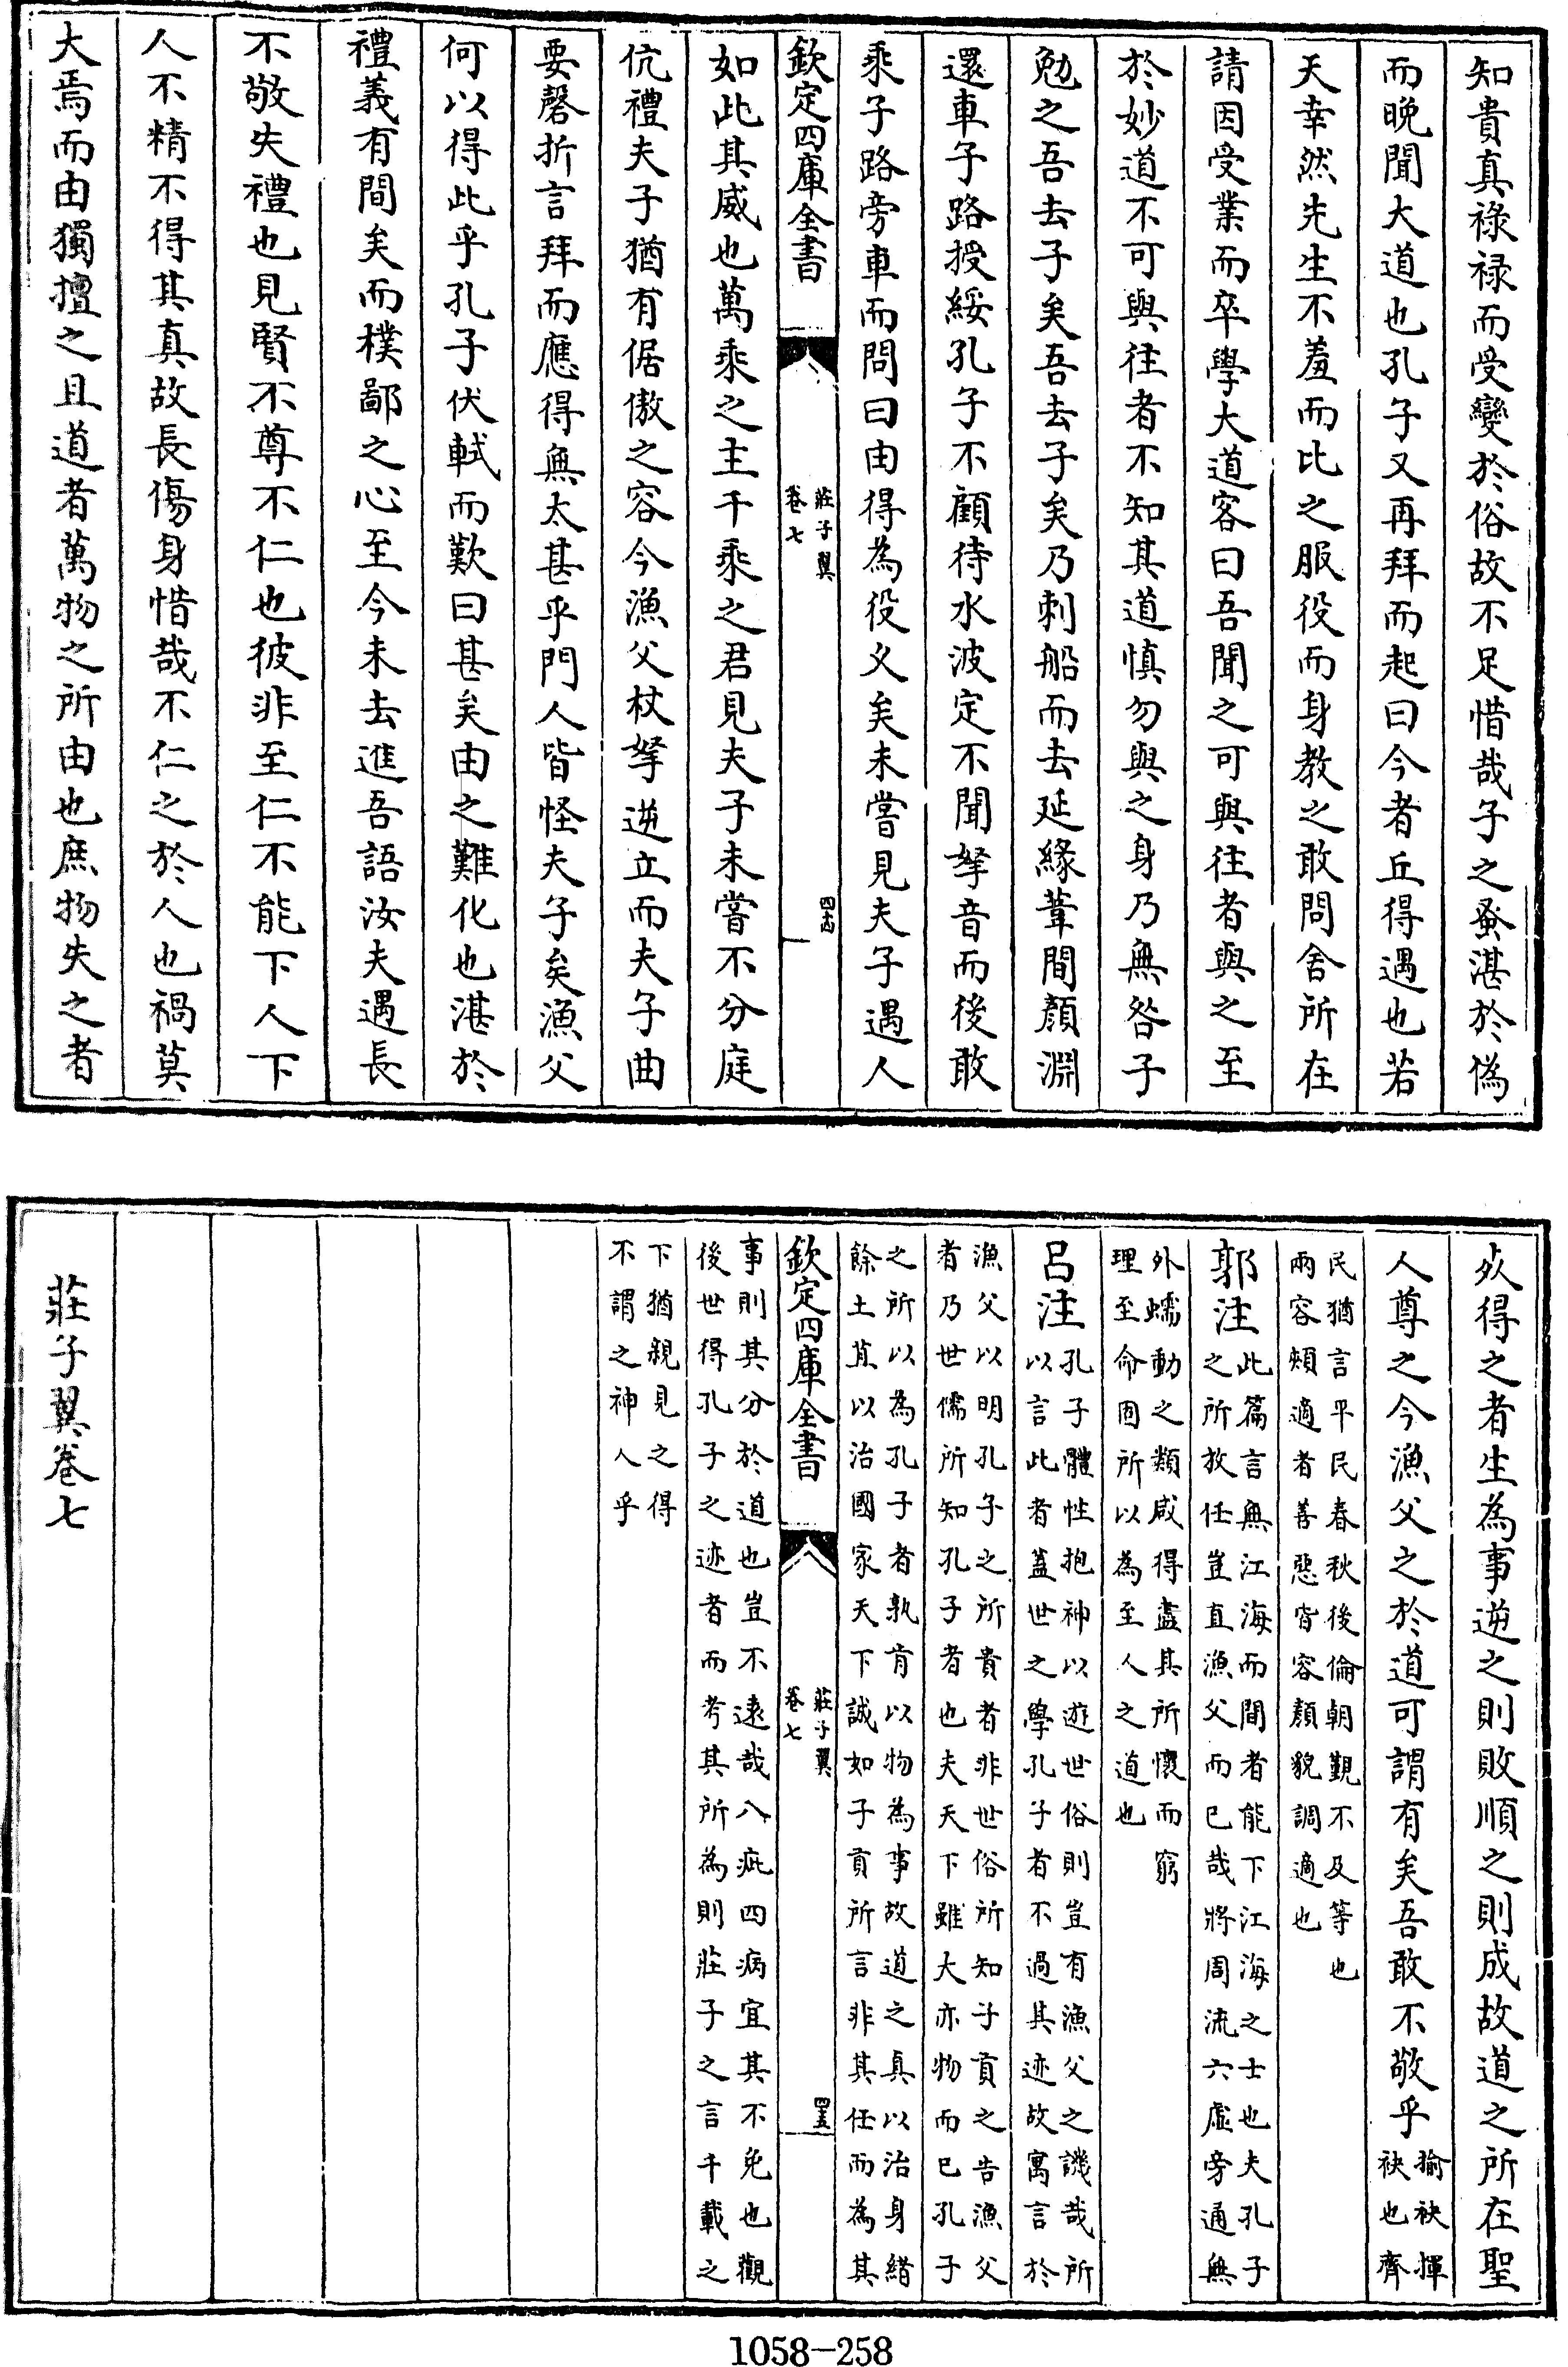 知貴真祿祿而受變於俗故不足惜哉子之蚤湛於偽
而晚聞大道也孔子又再拜而起曰今者丘得遇也若
天幸然先生不羞而比之服役而身教之敢問舍所在
請因受業而卒學大道客曰吾聞之可與往者與之至
於妙道不可與往者不知其道慎勿與之身乃無咎子
勉之吾去子矣吾去子矣乃刺船而去延緣葦間顏淵
還車子路授綏孔子不顧待水波定不聞拏音而後敢
乘子路旁車而問曰由得為役久矣未嘗見夫子遇人
欽定四庫全書
莊子翼
卷七
四十四
如此其威也萬乘之主千乘之君見夫子未嘗不分庭
伉禮夫子猶有倨傲之容今漁父杖拏逆立而夫子曲
要磬折言拜而應得無太甚乎門人皆怪夫子矣漁父
何以得此乎孔子伏軾而歎曰甚矣由之難化也湛於
禮義有間矣而樸鄙之心至今未去進吾語汝夫遇長
不敬失禮也見賢不尊不仁也彼非至仁不能下人下
人不精不得其真故長傷身惜哉不仁之於人也禍莫
大焉而由獨擅之且道者萬物之所由也庶物失之者
死得之者生為事逆之則敗順之則成故道之所在聖
人尊之今漁父之於道可謂有矣吾敢不敬乎
揄袂揮
袂也齊
民猶言平民春秋後倫朝覲不及等也
兩容頰適者善惡皆容顏貌調適也
郭注
此篇言無江海而間者能下江海之士也夫孔子
之所放任豈直漁父而已哉將周流六虛旁通無
外蠕動之類咸得盡其所懷而窮
理至命囿所以為至人之道也
呂注
孔子體性抱神以遊世俗則豈有漁父之譏哉所
以言此者蓋世之學孔子者不過其迹故寓言於
漁父以明孔子之所貴者非世俗所知子貢之告漁父
者乃世儒所知孔子者也夫天下雖大亦物而已孔子
之所以為孔子者孰肯以物為事故道之真以治身緒
餘土苴以治國家天下誠如子貢所言非其任而為其
欽定四庫全書
莊子翼
卷七
四十五
事則其分於道也豈不遠哉八疵四病宜其不免也觀
後世得孔子之迹者而考其所為則莊子之言千載之
下猶親見之得
不謂之神人乎
莊子翼卷七
1058-258